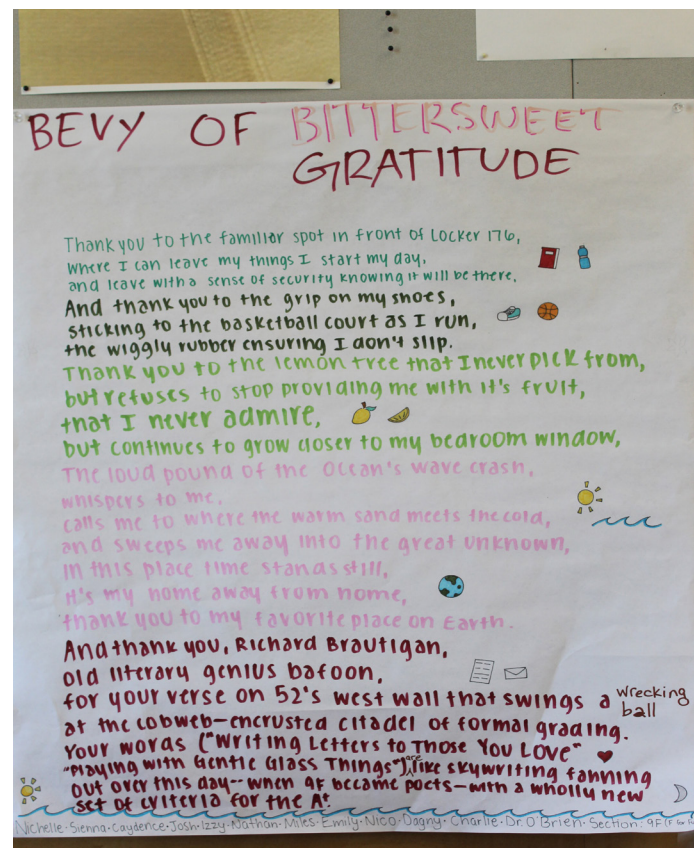 BEVY OF BITTERSWEET
GRATITUDE
Thank you to the familiar spot in front of Locker 176,
where I can leave my things I start my day,
and leave with a sense of security knowing it will be there.
And thank you to the grip on my shoes,
sticking to the basketball court as I run,
the wiggly rubber ensuring I don't slip.
Thank you to the lemon tree that I never pick from,
but refuses to stop providing me with it's fruit,
that I never admire,
but continues to grow closer to my bedroom window,
The loud pound of the Ocean's wave crash,
whispers to me.
calls me to where the warm sand meets the cold,
and sweeps me away into the great unknown,
in this place time stands still,
it's my home away from home,
thank you to my favorite place on Earth.
And thank you, Richard Brautigan,
old literary genius bafoon,
for your verse on 52's west wall that swings a wrecking ball
at the cobweb-encrusted citadel of formal grading.
Your words ("Writing Letters to Those You Love"
"Playing with Gentle Glass Things") are like skywriting fanning
out over this day-- when 9F became poets-with a wholly new
set of criteria for the A+.
Nichelle·Sienna·Caydence·Josh·Izzy·Nathan·Miles·Emily·Nico·Dagny·Charlie·Dr. O'Brien·Section: 9F (F for